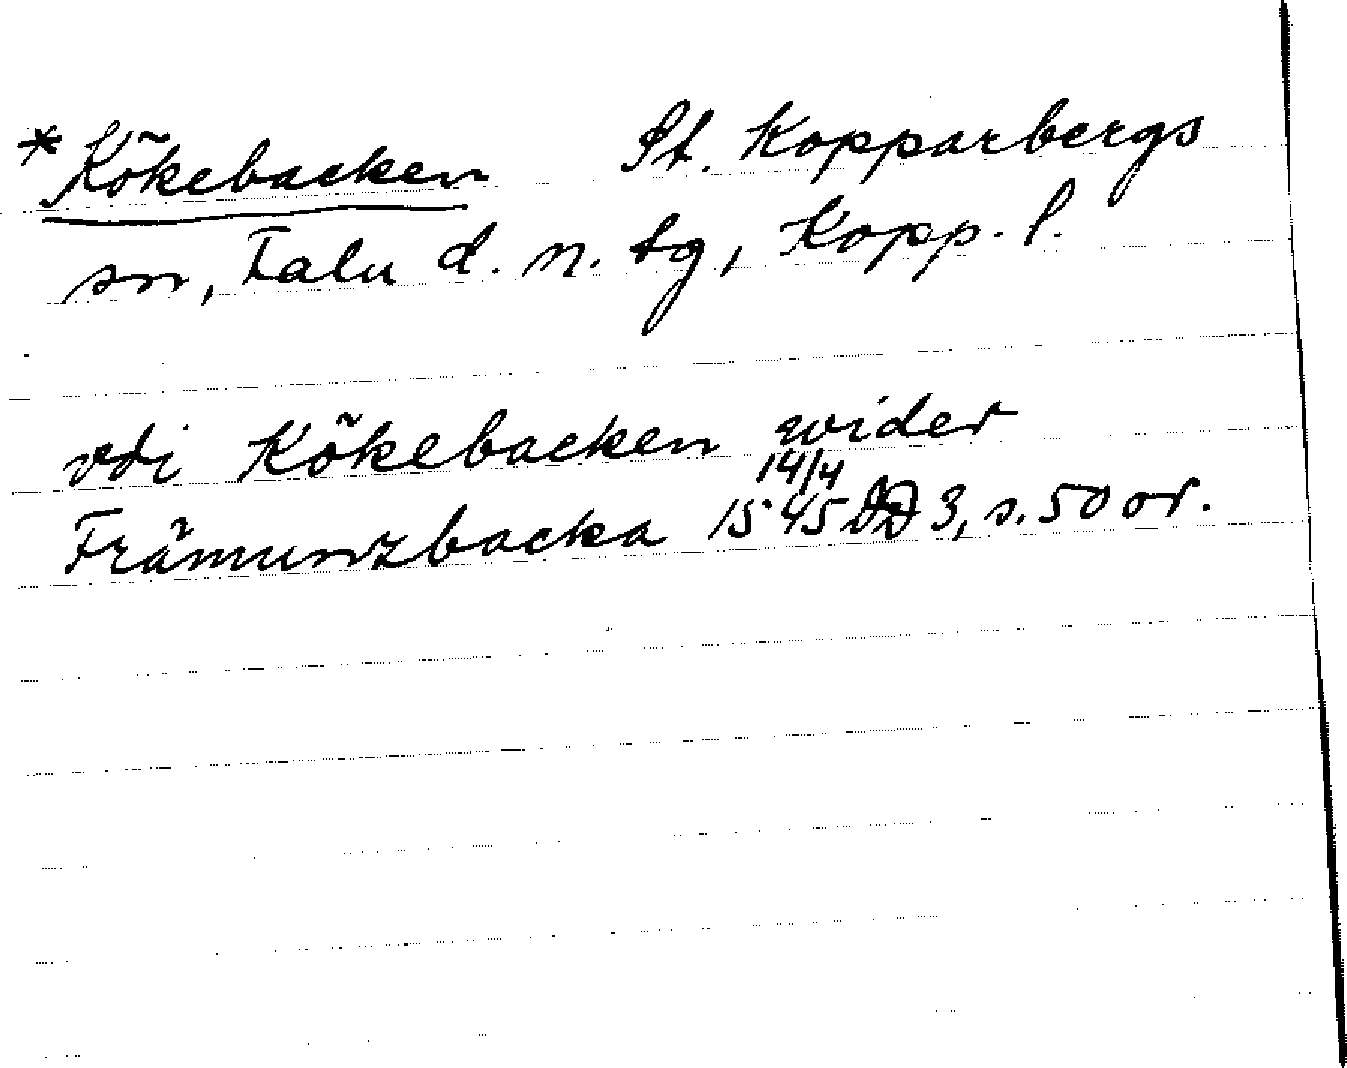 *Kökebacken St. Kopparbergs
sn, Falu d. n. tg, Kopp. l.
vdi Kökebacken wider
Främunzbacka 14/4 1545 DD 3, s. 50 or.